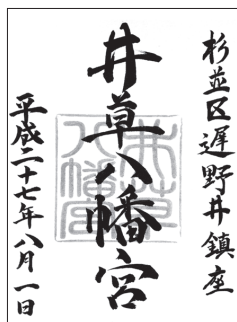 杉並区遅野井鎮座
井草八幡宮
平成二十七年八月一日